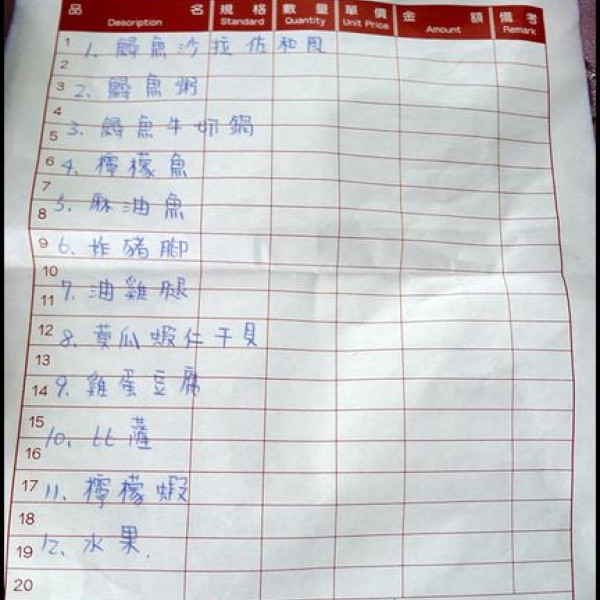 品名 規格 數量 單價 金額 備考
Description Standard Quantity Unit Price Amount Remark
1 1. 鱘魚沙拉佐和風
2
3 2. 鱘魚粥
4
5 3. 鱘魚牛奶鍋
6 4. 檸檬魚
7
8 5. 麻油魚
9 6. 炸豬腳
10
11 7. 油雞腿
12 8. 黃瓜蝦仁干貝
13
14 9. 雞蛋豆腐
15
16 10. 比薩
17 11. 檸檬蝦
18
19 12. 水果.
20